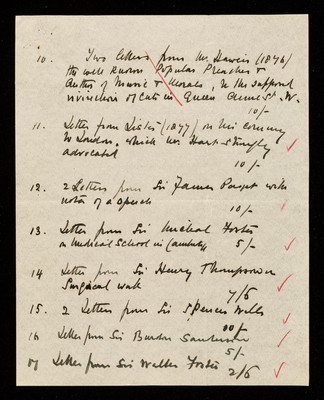 10. Two letters from Mr. Haweis (1876)
the well known Popular Preacher &
Author of Music & Morals, re the supposed
vivisection of Cats in Queen Anne St. W.
10/-
11. Letter from Lister (1877) on his coming
to London, which Mr. Hart strongly
advocated
10/-
12. 2 Letters from Sir James Paget with
notes of a speech
10/-
13. Letter from Sir Michael Foster
on Medical School in Cambridge
5/-
14 Letter from Sir Henry Thompson on
Surgical work
7/6
15. 2 Letters from Sir Spencer Wells
10/-
16 Letter from Sir Burdon Sanderson
5/-
17 Letter from Sir Walter Foster
2/6